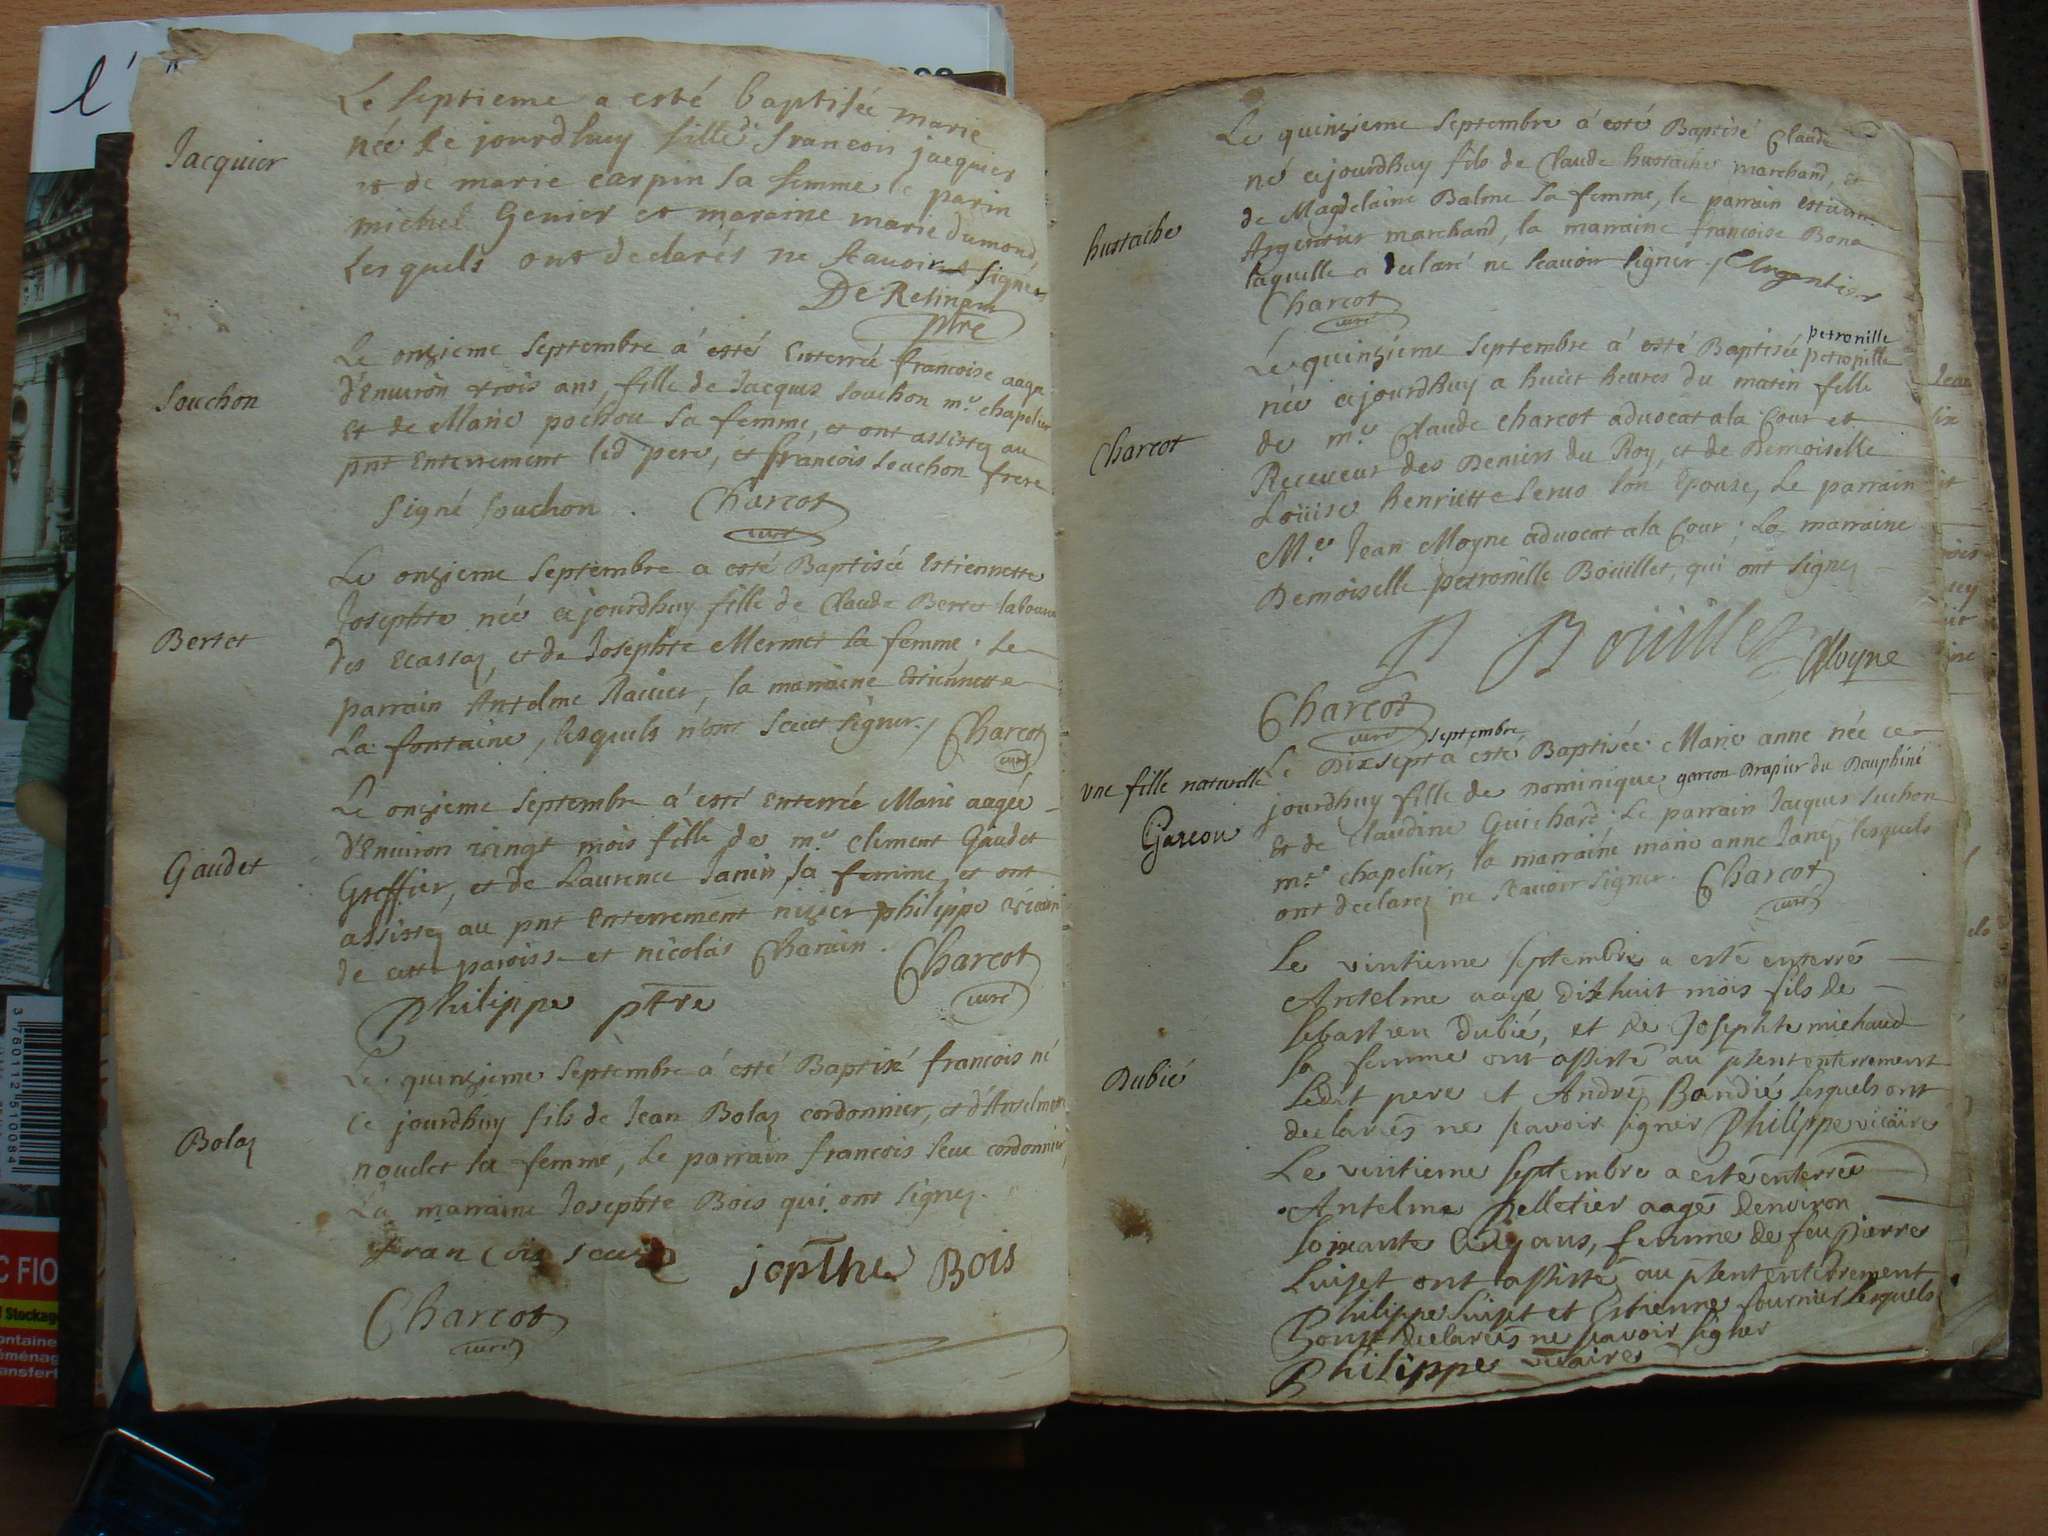 l'
Jacquier
Le septieme a esté baptisée marie
née le jourdhuy fille francois jacquier
et de marie carpin sa femme le parin
michel Genier et maraine marie dumond,
Lesquels ont declarés ne scauoir signer
De Resinam
ptre
Souchon
Le onzieme septembre a' esté Enterrée francoise aagée
d'Enuiron trois ans, fille de Jacques Souchon mr. chapelier
Et de Marie pochou sa femme, et ont assistez au
pnt Enterrement led pere, et francois souchon frere
signé souchon . Charcot
curé
Bertet
Le onzieme septembre a esté Baptisée Estiennette
Josephte née cejourdhuy fille de Claude Bertet laboureur
des Ecassaz, et de Josephte Mermet sa femme . Le
parrain Antelme Rauier, la marraine Estiennette
La fontaine, lesquels n'ont sceut signer ./ Charcot
curé
Gaudet
Le onzieme septembre a' esté Enterrée Marie aagée
d'Enuiron vingt mois fille de mr. Clement Gaudet
Greffier, et de Laurence Janin sa femme, et ont
assistez au pnt Enterrement nizier philippe vicaire
de cette paroisse et nicolas Charuin . Charcot
curé
Philippe ptre
Bolaz
Le quinzieme septembre a' esté Baptisé francois né
ce jourdhuy fils de Jean Bolaz cordonnier, et d'Anselmette
noudet sa femme, Le parrain francois seue cordonnier,
La marraine Josephte Bois qui ont signez .
francois seue jopthe Bois
Charcot
curé
hustache
Le quinzieme septembre a' esté Baptisé Claude
né cejourdhuy fils de Claude hustache marchand, et
de Magdelaine Balme sa femme, le parrain estienne
Argentier marchand, la marraine francoise Bona
laquelle a declaré ne scauoir signer ./ Argentier
Charcot
curé
Charcot
petronille
Le quinzieme septembre a' esté Baptisée petronille
née cejourdhuy a huict heures du matin fille
de mr. Claude Charcot aduocat ala Cour et
Receueur des Deniers du Roy, et de Demoiselle
Loüise henriette Seruo son Epouse, Le parrain
Mre. Jean Moyne aduocat ala Cour ; La marraine
Demoiselle petronille Boüillet, qui ont signez
P Boüillet Moyne
Charcot
curé
vne fille naturelle
Garcon
septembre
Le Dixsept a esté Baptisée Marie anne née ce
jourdhuy fille de nominique garcon Drapier du Dauphiné
Et de Claudine Guichard . Le parrain Jacques Suchon
mre. chapelier, la marraine marie anne Janez, lesquels
ont declarez ne scauoir signer . Charcot
curé
Dubié
Le vintieme septembre a esté enterré
Antelme aagé dixhuit mois fils de
sebastien dubié, et de Josephte michaud
sa femme ont assisté au psent enterrement
Ledit pere et André Bandié lesquels ont
declarés ne scavoir signer Philippe vicaire
Le vintieme septembre a esté enterrée
Antelme pelletier aagé denviron
soixante cinq ans, femme de feu Pierre
Luiset ont assisté au psent enterrement
Philippe Luiset et Estienne fournier lesquels
sont declarés ne scavoir signer
Philippe vicaire
C FIO
3 760112 510084